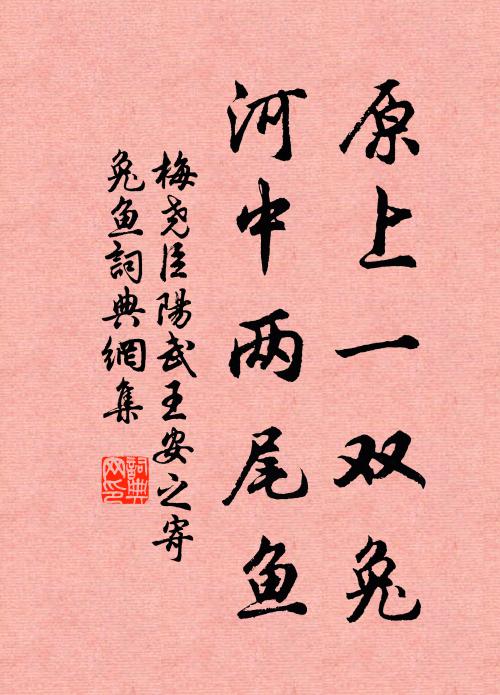 原上一双兔
河中两尾鱼
梅尧臣陽武王安之寄
兔鱼詞典網集
詞典网印